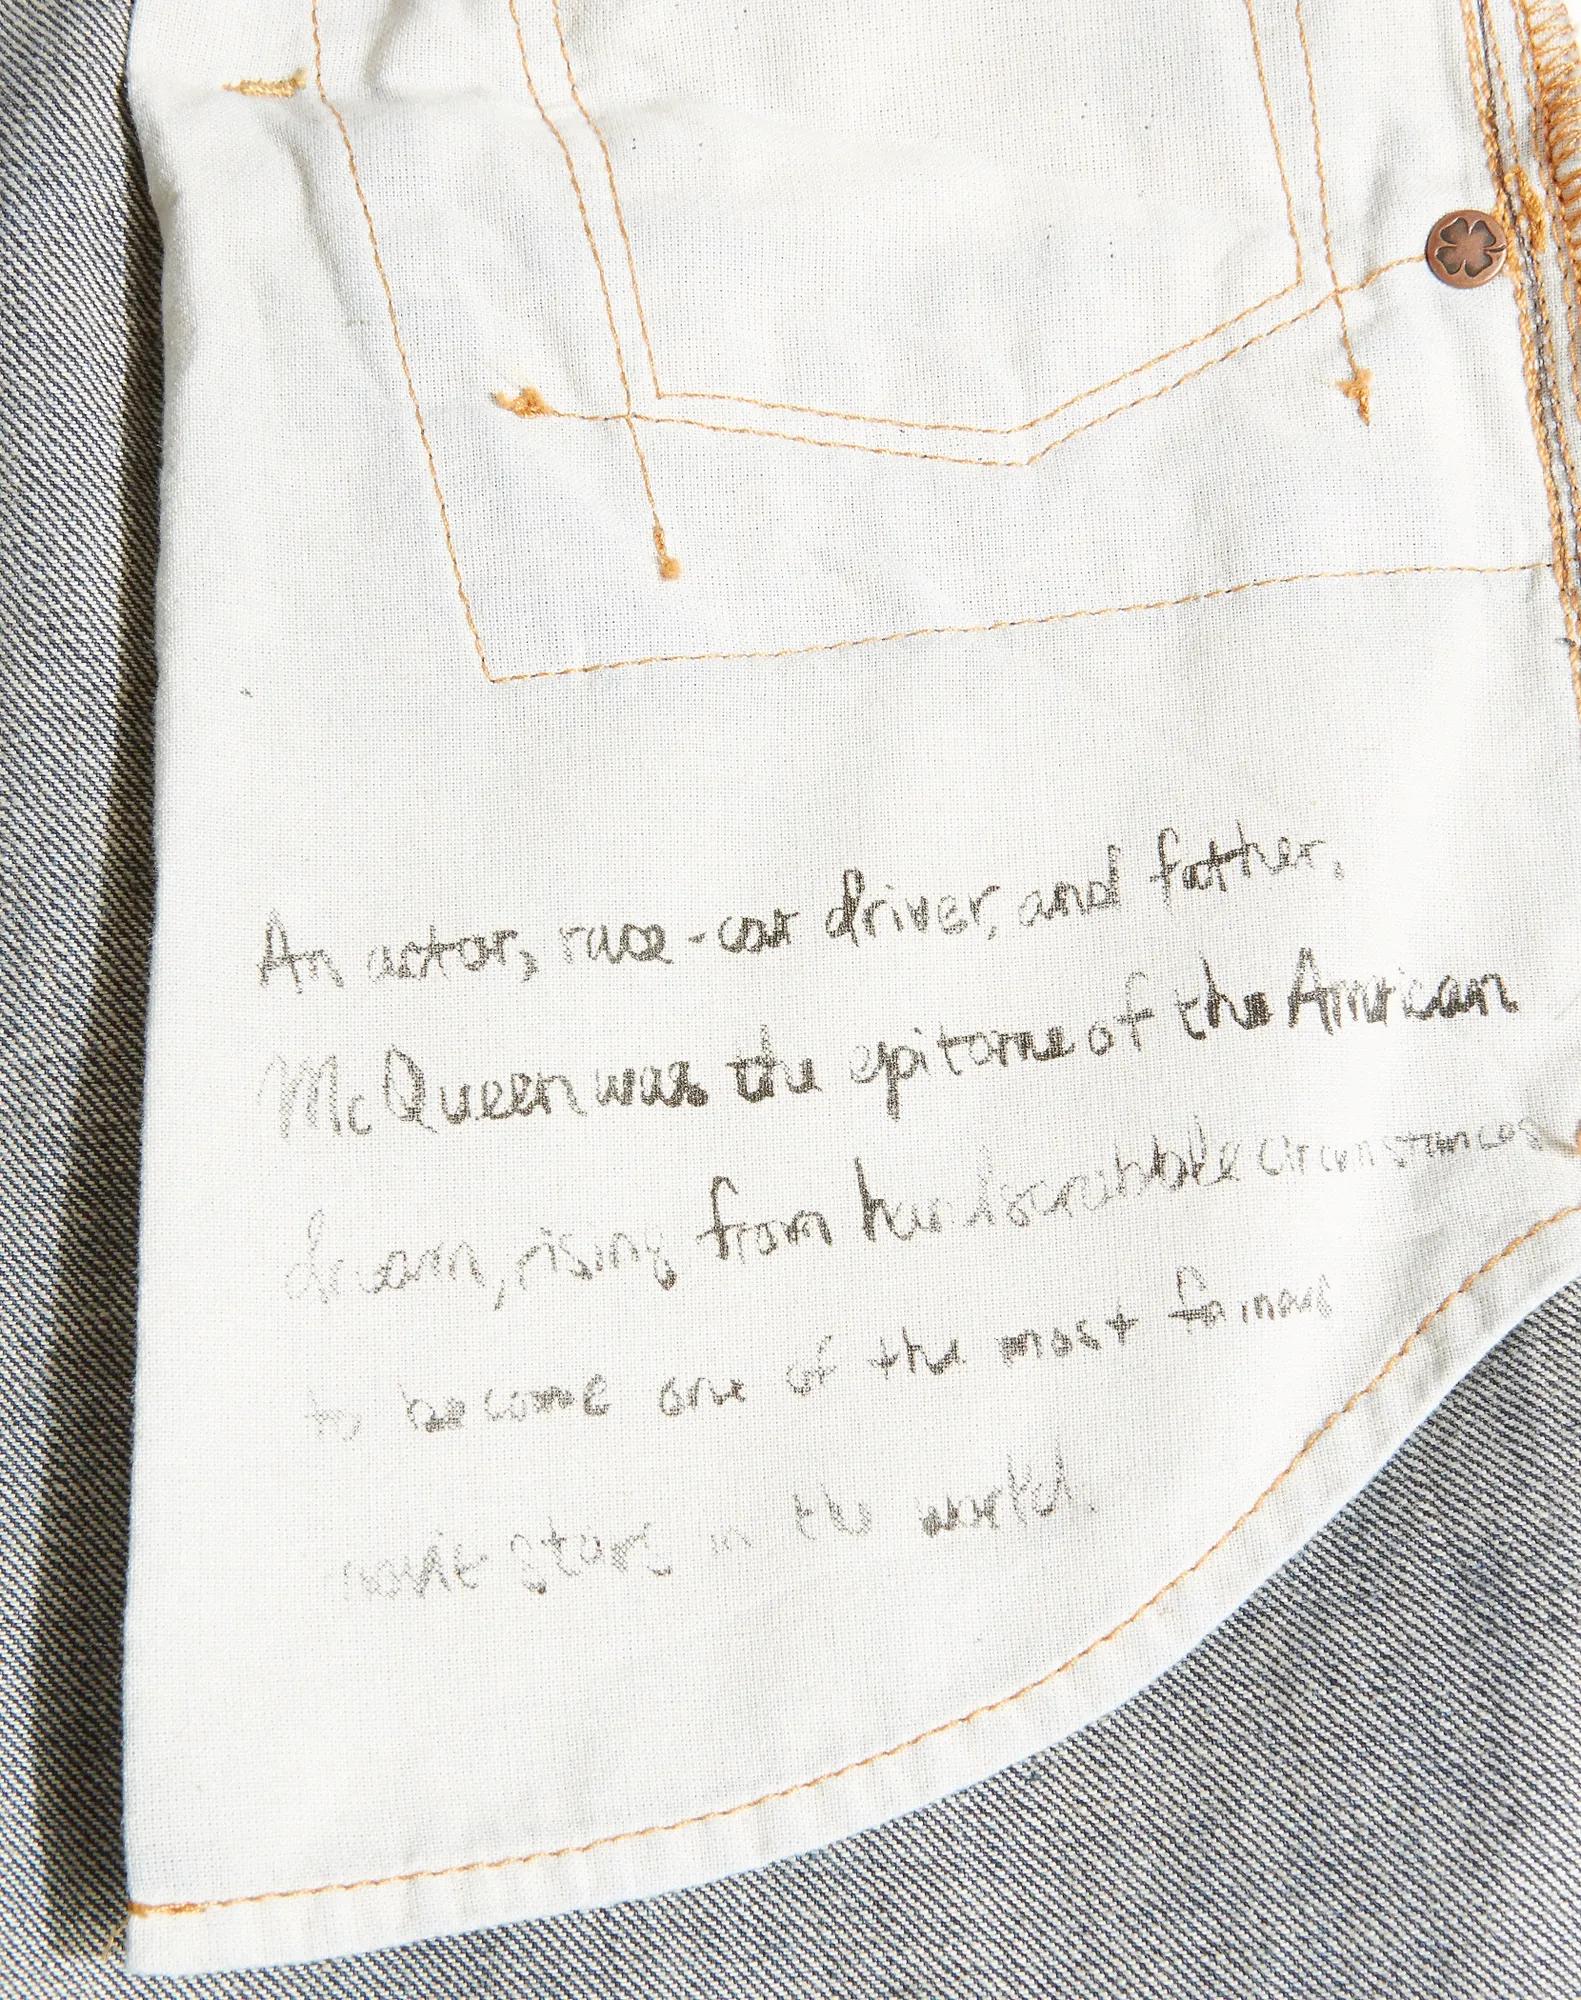 An actor, race-car driver, and father,
McQueen was the epitome of the American
dream, rising from hardscrabble circumstances
to become one of the most famous
movie stars in the world.